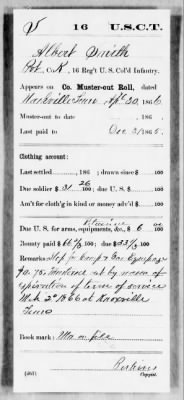 S 16 U.S.C.T.
Albert Smith
Pvt, Co. K, 16 Reg't U.S. Col'd Infantry.
Appears on Co. Muster-out Roll, dated
Nashville Tenn Apl 30, 1866.
Muster-out to date , 186 .
Last paid to Dec 31 1865.
Clothing account:
Last settled , 186 ; drawn since $ 100
Due soldier $ 31 26/100; due U.S. $ 100
Am't for cloth'g in kind or money adv'd $ 100
Due U.S. for arms, equipments, &c., $ 6 00/100
Bounty paid $ 66 2/3 100; due $ 33 1/3 100
Remarks: Stop for Camp & Gar Equipage
by reason of
expiration of term of service
at Knoxville
Tenn
Book mark: Ma on file
Perkins
(361) Copyist.